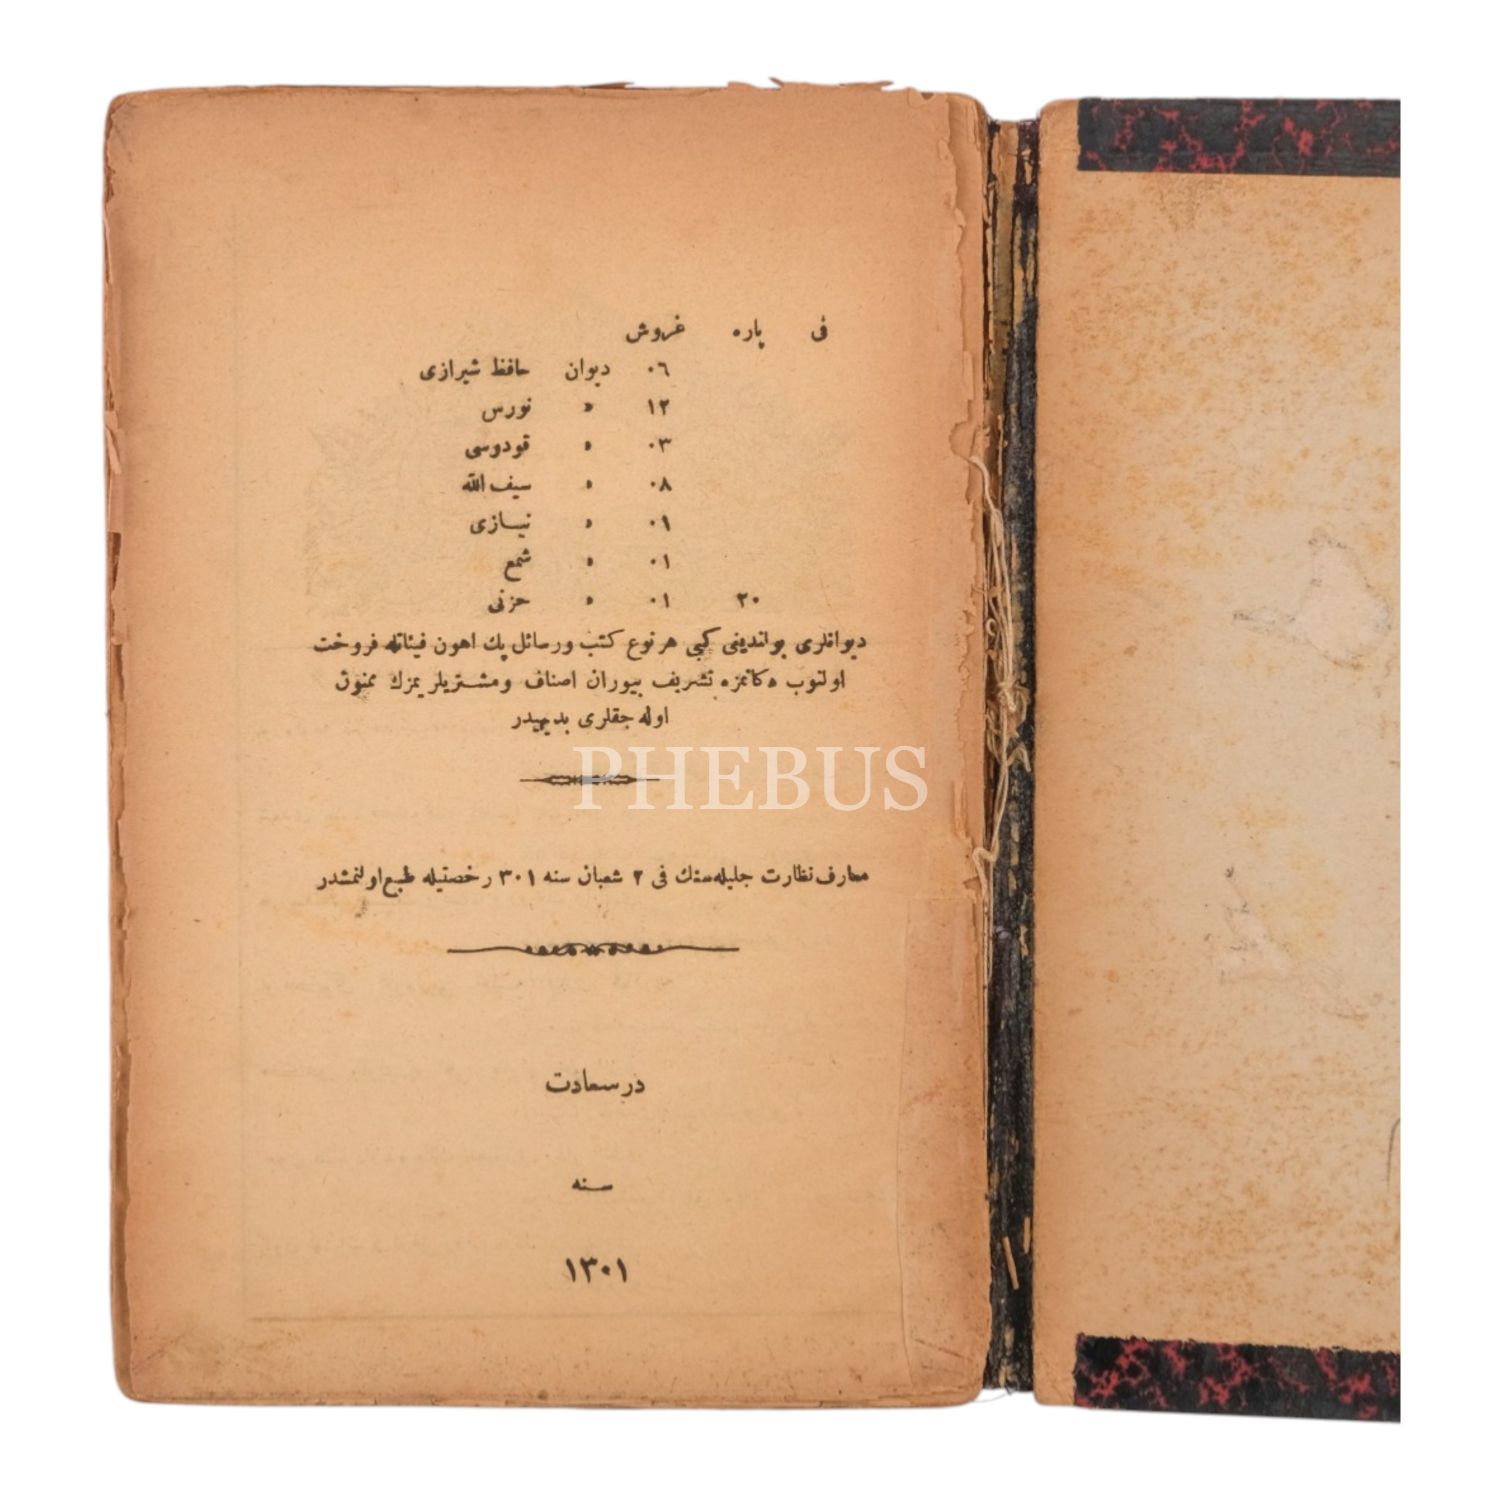 فی پاره غروش
٠٦ دیوان حافظ شیرازی
١٢ » نورس
٠٣ » قودوسی
٠٨ » سیف الله
٠١ » نیازی
٠١ » شمع
٢٠ ٠١ » حزنی
دیوانلری بولندیغی کبی هر نوع کتب ورسائل پك اهون فیئاتله فروخت
اولنوب دکانمزه تشریف بیوران اصناف ومشتریلریمزك ممنون
اوله جقلری بدیهیدر
PHEBUS
معارف نظارت جلیله سنك فی ٢ شعبان سنه ٣٠١ رخصتیله طبع اولنمشدر
درسعادت
سنه
١٣٠١